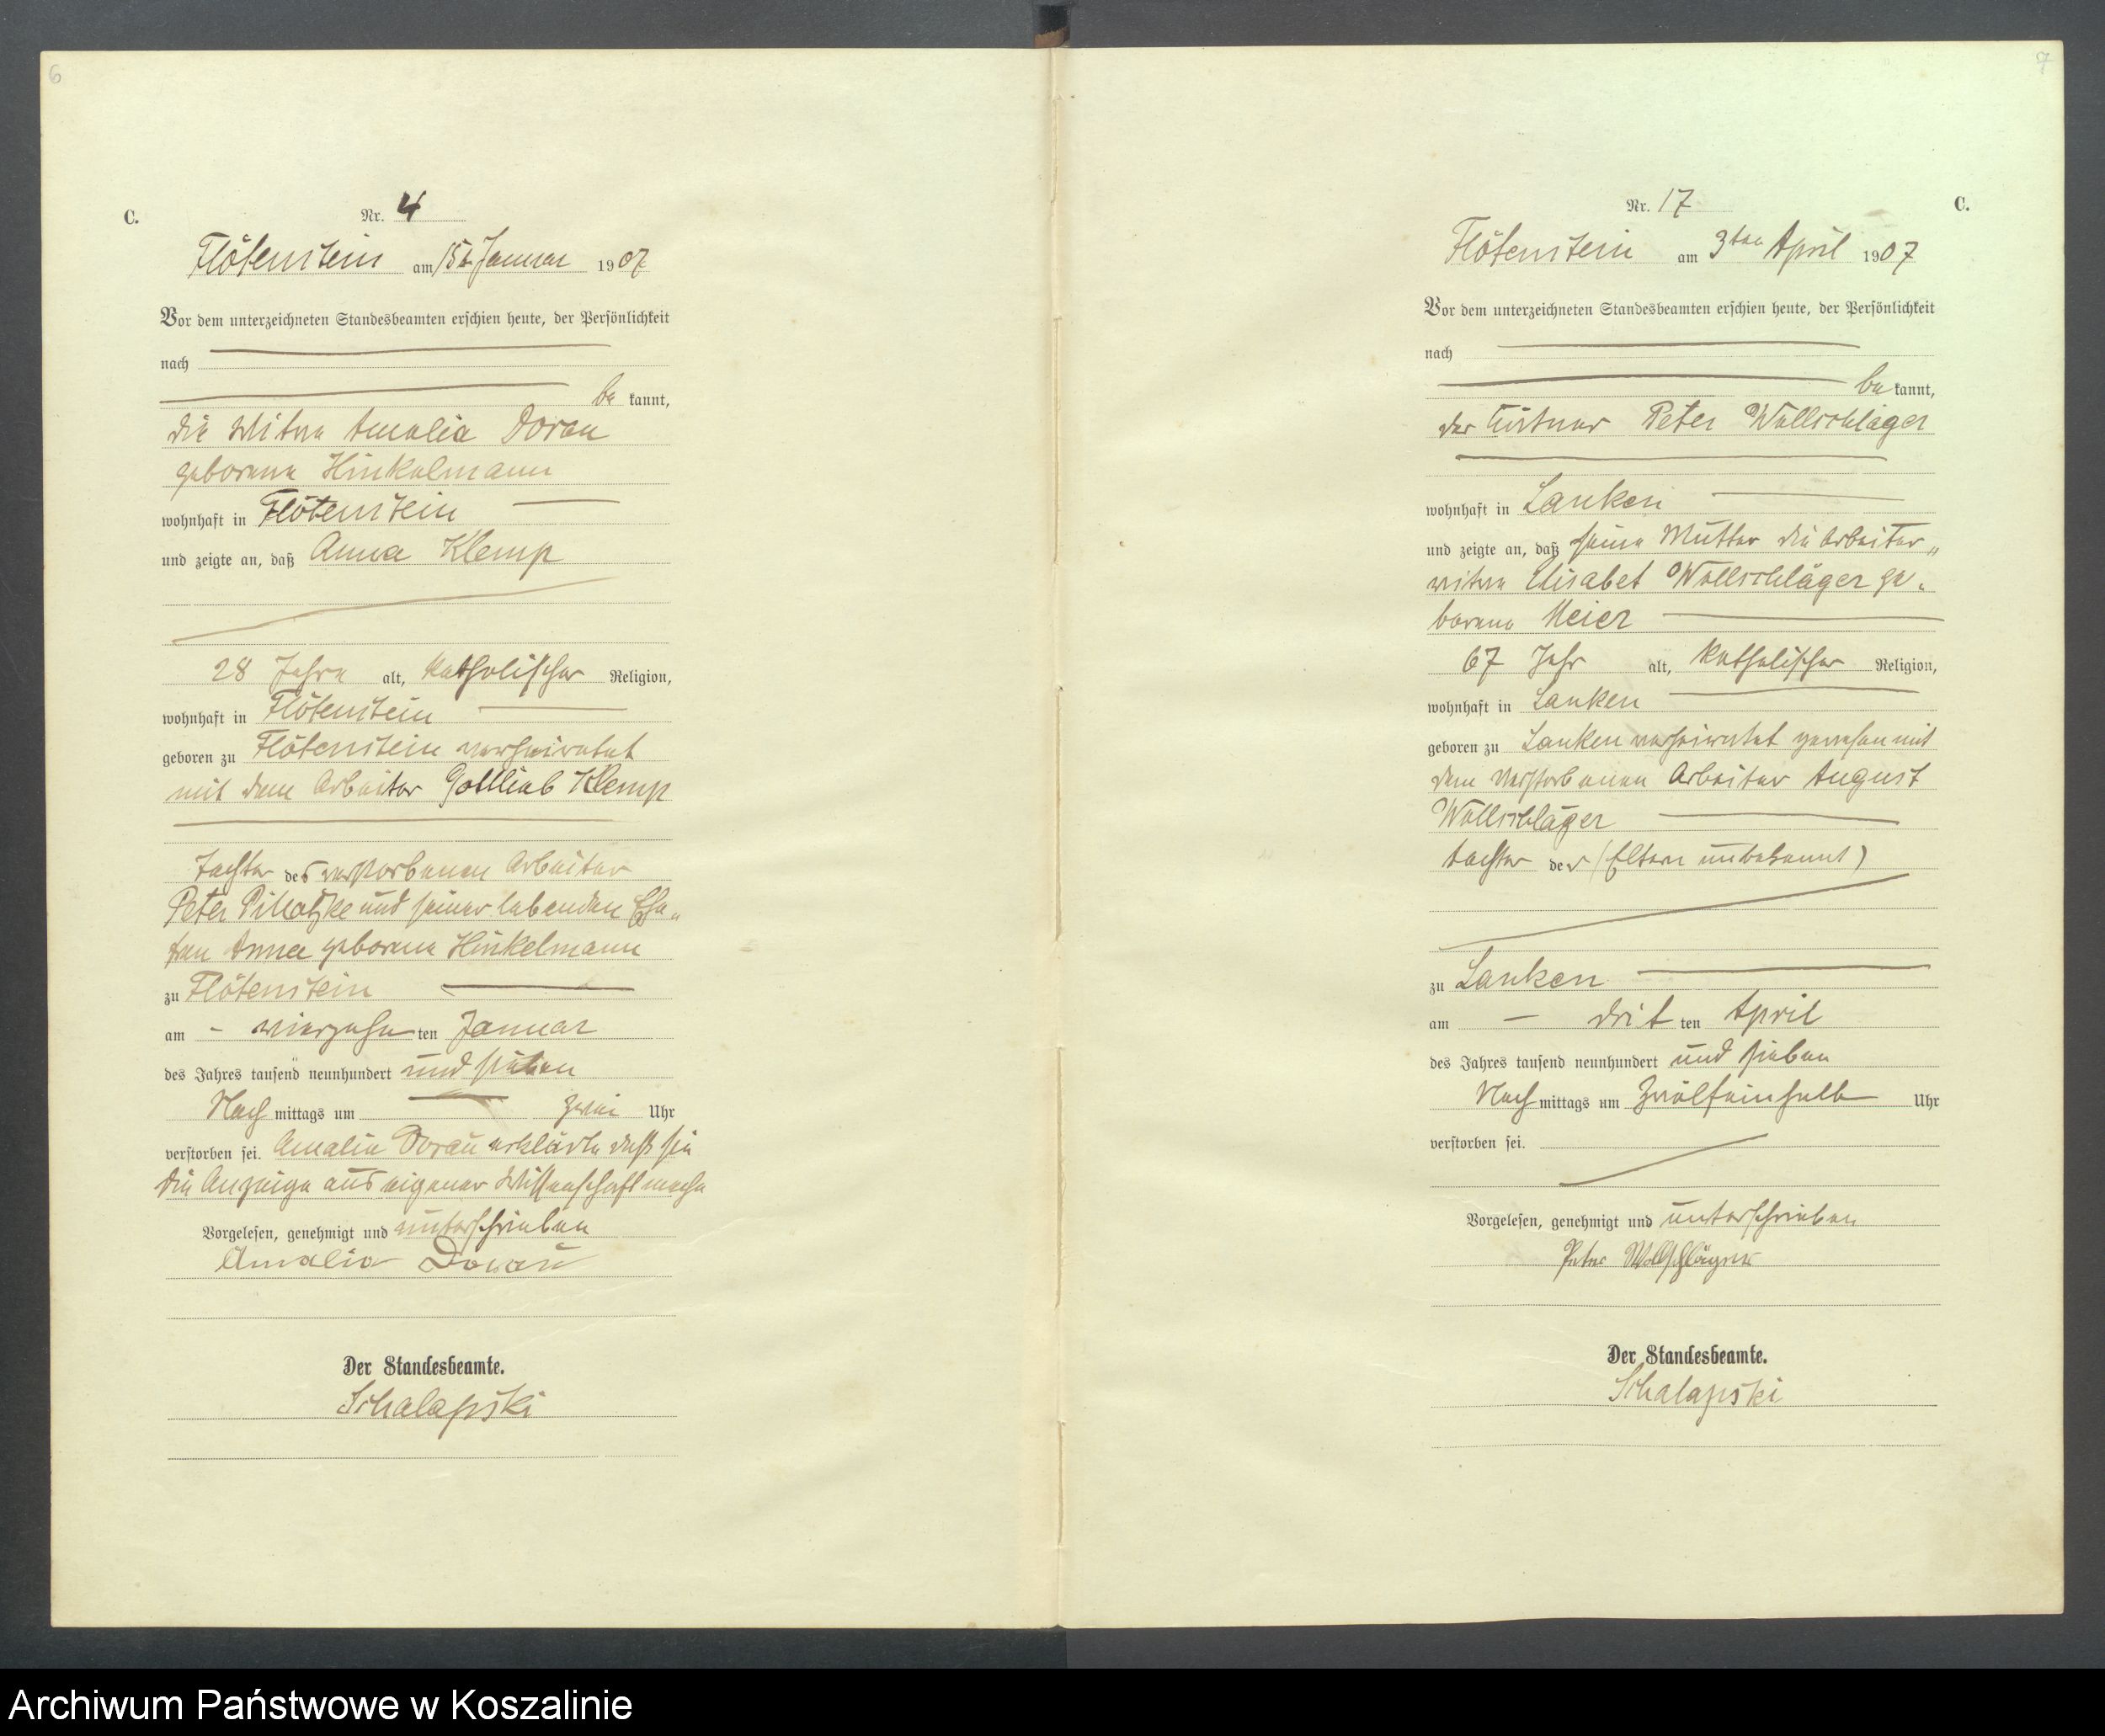 6
C.
Nr. 4
Flötenstein am 15ten Januar 1907
Vor dem unterzeichneten Standesbeamten erschien heute, der Persönlichkeit
nach
be kannt,
die Witwe Amalia Dorau
geborene Hinkelmann
wohnhaft in Flötenstein
und zeigte an, daß Anna Klemp
28 Jahre alt, katholischer Religion,
wohnhaft in Flötenstein
geboren zu Flötenstein verheiratet
mit dem Arbeiter Gottlieb Klemp
Tochter des verstorbenen Arbeiter
Peter und seiner lebenden Ehe„
frau Anna geborene Hinkelmann
zu Flötenstein
am - vierzehn ten Januar
des Jahres tausend neunhundert und sieben
Nach mittags um zwei Uhr
verstorben sei. Amalia Dorau erklärte daß sie
die Anzeige aus eigener Wissenschaft mache
Vorgelesen, genehmigt und unterschrieben
Amalia Dorau
Der Standesbeamte.
Schalapski
7
Nr. 17
C.
Flötenstein am 3ten April 1907
Vor dem unterzeichneten Standesbeamten erschien heute, der Persönlichkeit
nach
be kannt,
der Peter Wollschläger
wohnhaft in Lanken
und zeigte an, daß seine Mutter die Arbeiter„
witwe Elisabet Wollschläger ge„
borene Meier
67 Jahr alt, katholischer Religion,
wohnhaft in Lanken
geboren zu Lanken verheiratet gewesen mit
dem verstorbenen Arbeiter August
Wollschläger
Tochter der (Eltern unbekannt)
zu Lanken
am - drit ten April
des Jahres tausend neunhundert und sieben
Nach mittags um Zwölfeinhalb Uhr
verstorben sei.
Vorgelesen, genehmigt und unterschrieben
Peter Wollschläger
Der Standesbeamte.
Schalapski
Archiwum Państwowe w Koszalinie